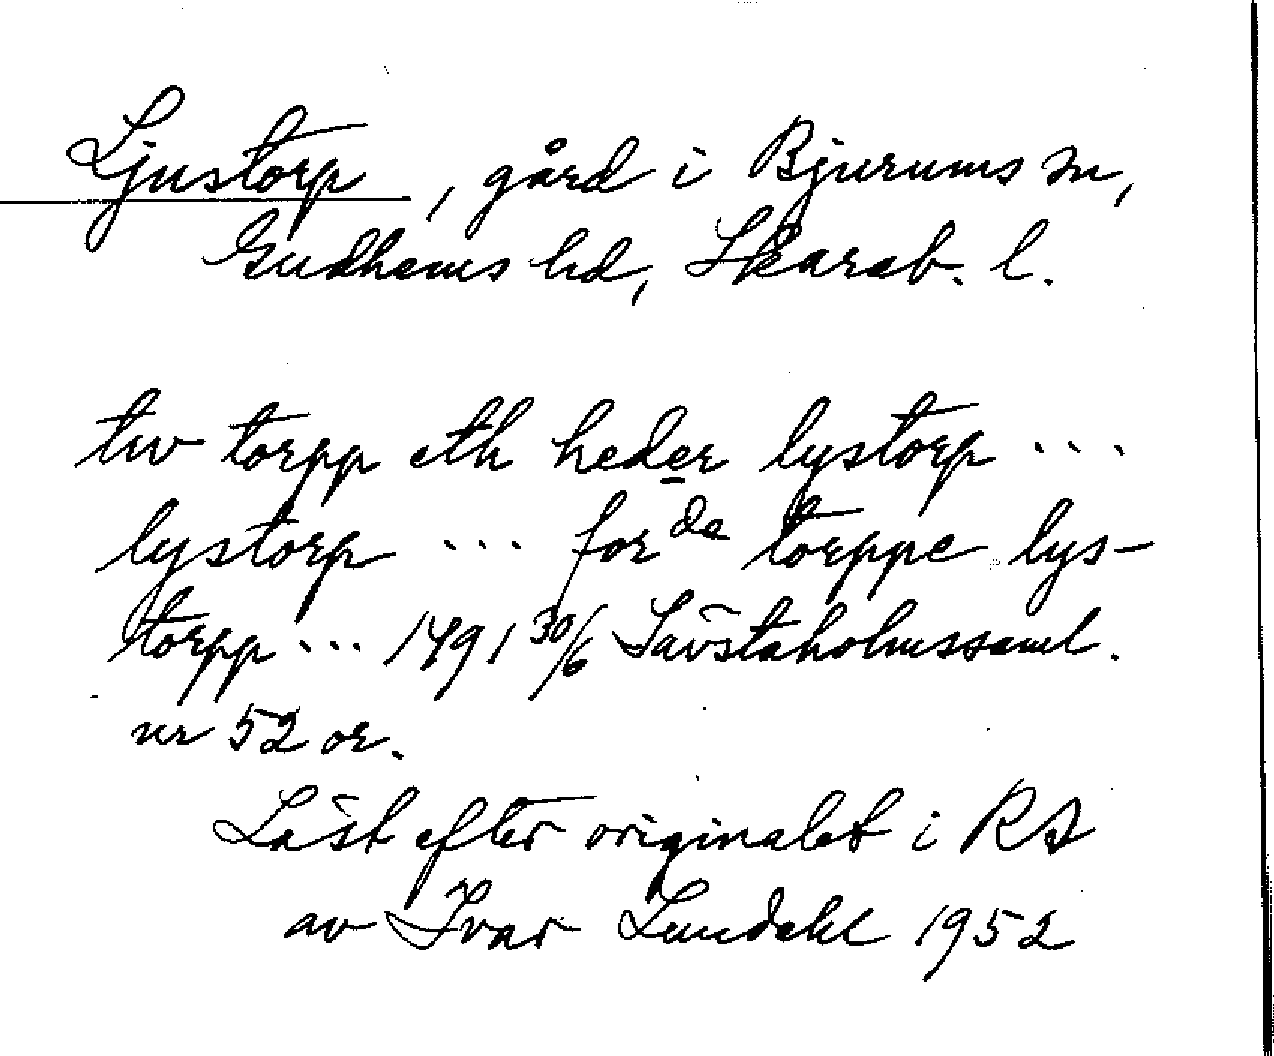 Ljustorp, gård i Bjurums sn,
Gudhems hd, Skarab. l.
tw torpp eth heder lystorp ...
lystorp ... for de torppe lys-
torpp ... 1491 30/6 Sävstaholmssaml.
nr 52 or.
Läst efter originalet i RA
av Ivar Lundahl 1952